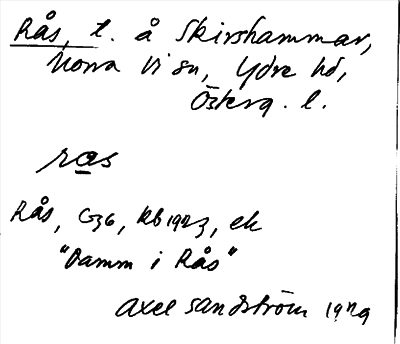 Rås, t. å Skirshammar,
Norra Vi sn, Ydre hd,
Österg. l.
ras
Rås, G36, Rb 1923, ek
"Damm i Rås"
Axel Sandström 1929